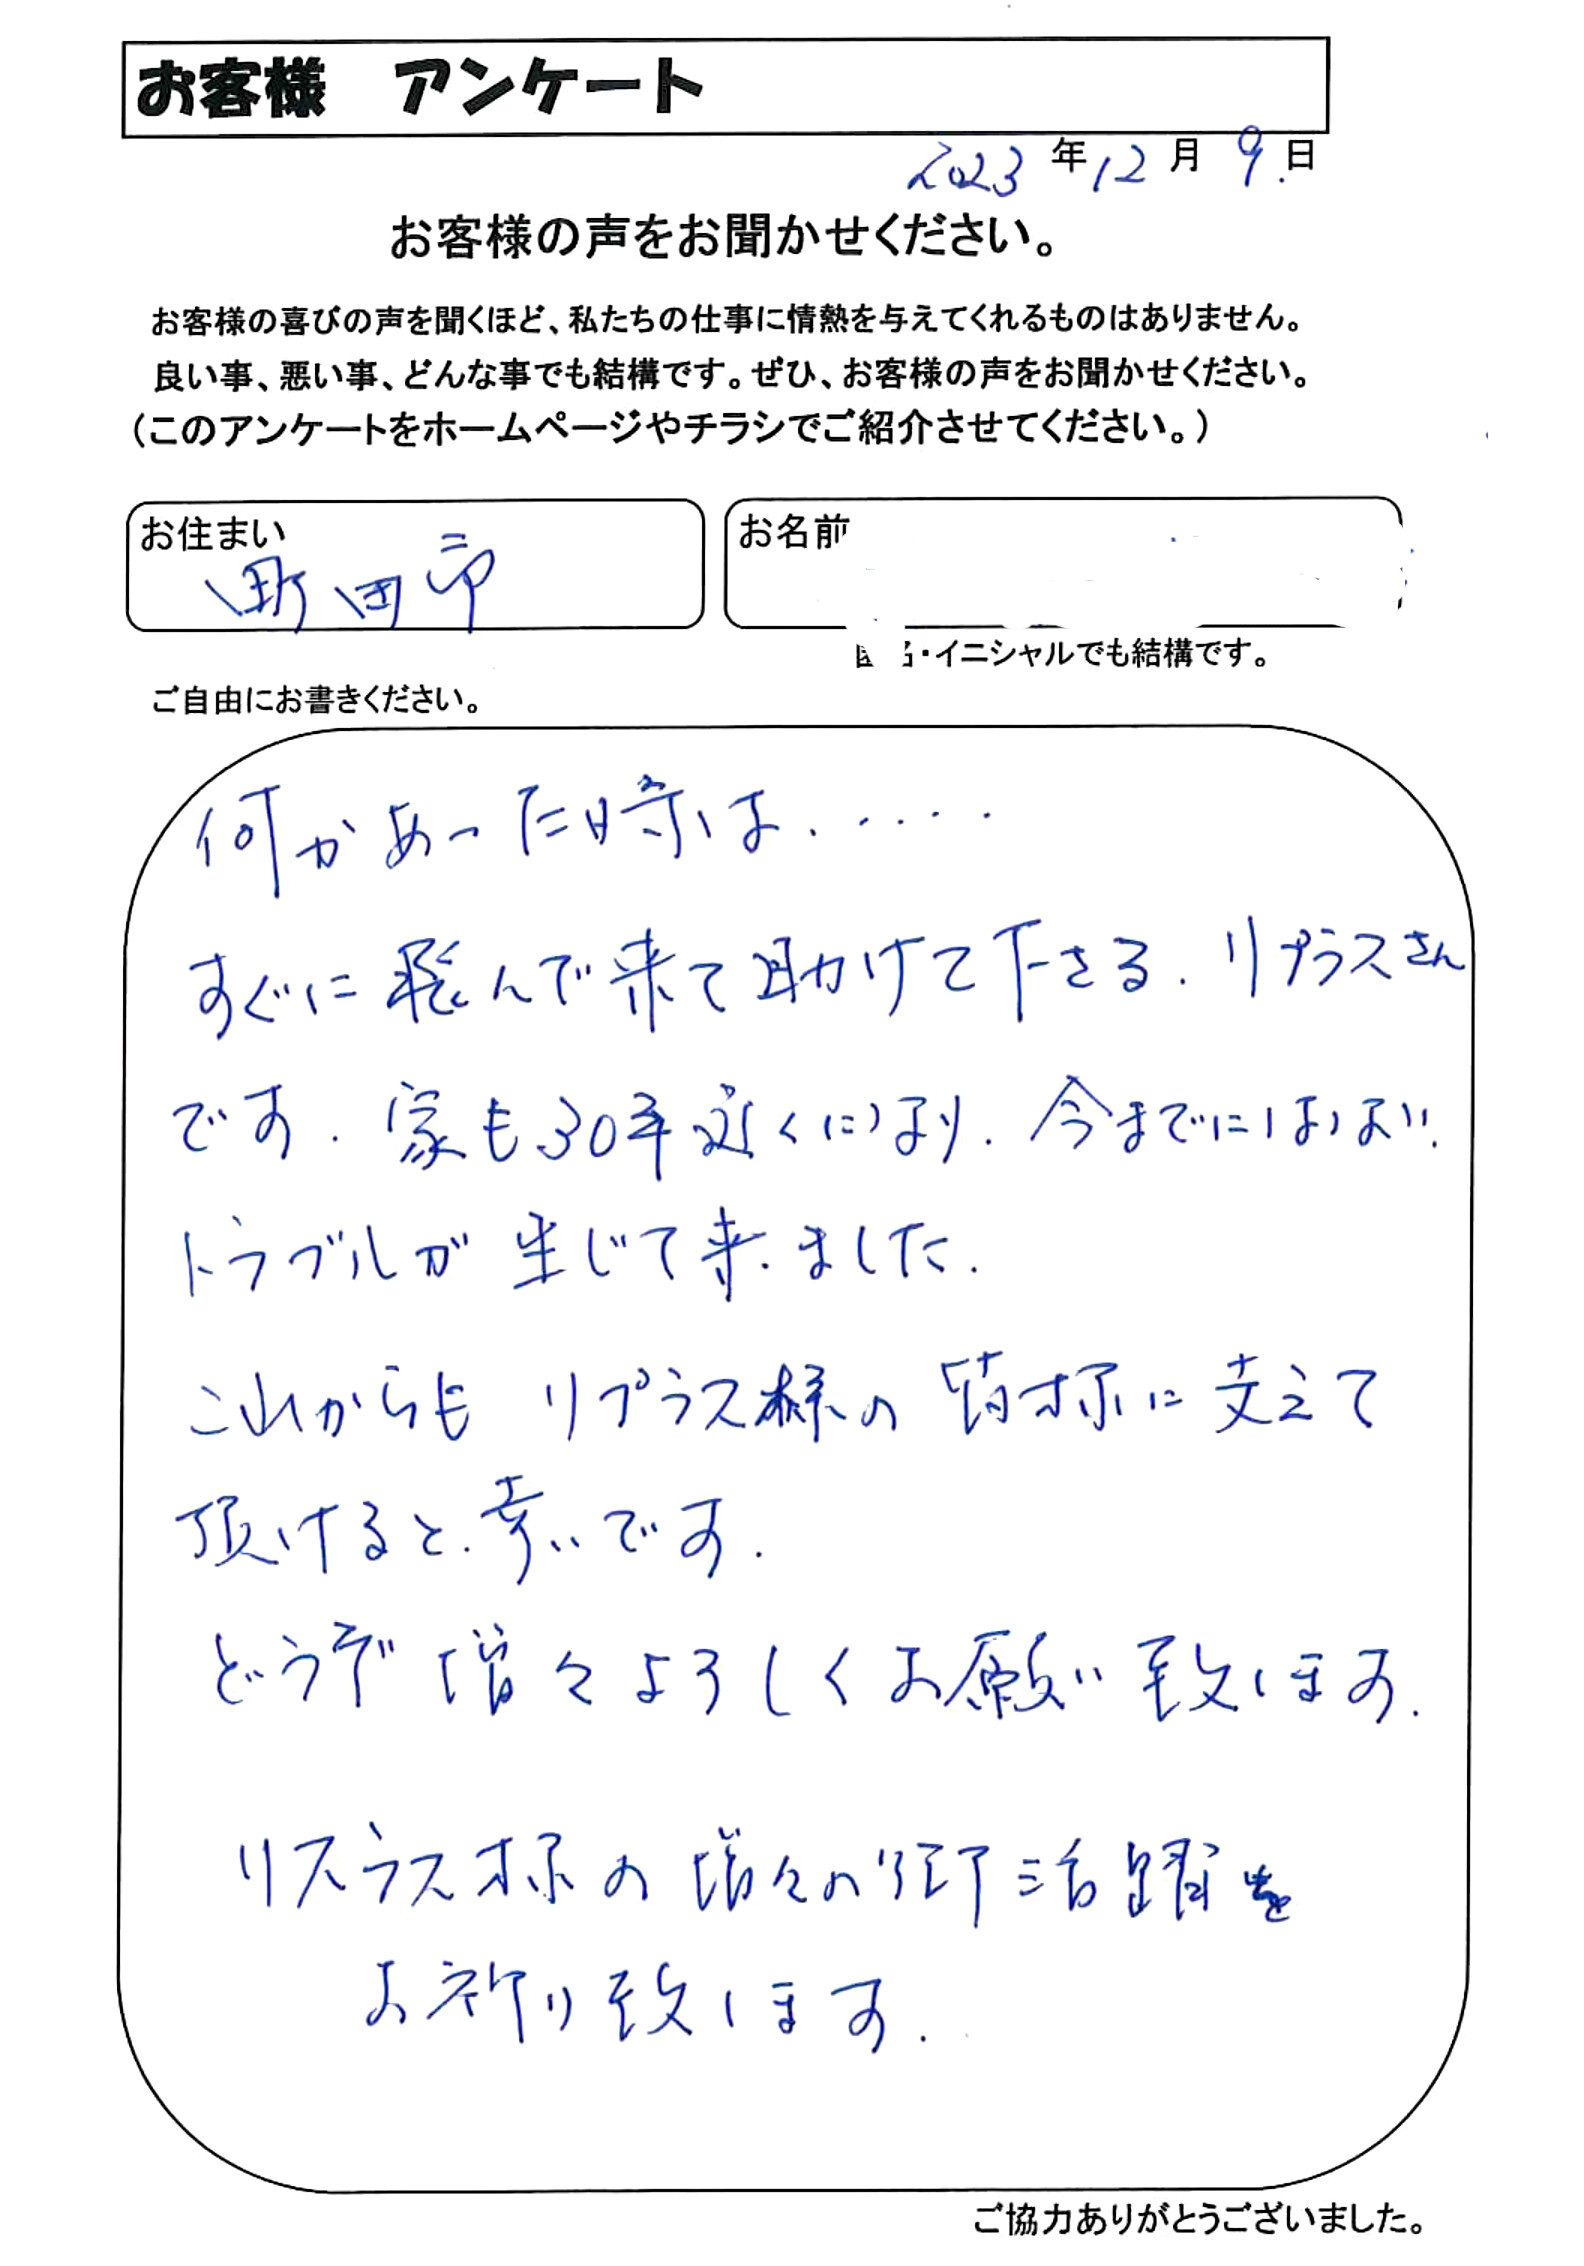 お客様 アンケート
2023年12月9日
お客様の声をお聞かせください。
お客様の喜びの声を聞くほど、私たちの仕事に情熱を与えてくれるものはありません。
良い事、悪い事、どんな事でも結構です。ぜひ、お客様の声をお聞かせください。
（このアンケートをホームページやチラシでご紹介させてください。）
お住まい
町田市
お名前
名・イニシャルでも結構です。
ご自由にお書きください。
何かあった時は.‥‥
すぐに飛んで来て助けて下さる.リプラスさん
です.家も30年近くになり.今までには
トラブルが生じて来ました.
これからもリプラス様の皆様に支えて
頂けると.幸いです.
どうぞ増々よろしくお願い致します.
リプラス様の増々の御活躍を
お祈り致します.
ご協力ありがとうございました。